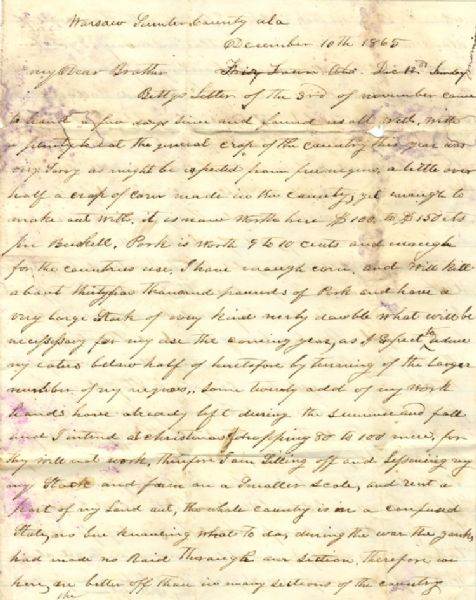 Warsaw Sumter County ala
December 10th 1865
my Dear Brother
Bettys Letter of the 3rd of november came
to hand a few days since and found us all well, with
plenty but the general crop of the country this year was
very Sorry as might be expected from free negroes, a little over
half a crop of corn made in the country, yet enough to
make out with. it is now worth here $100 to $150 cts
per Bushell. Pork is worth 9 to 10 cents and enough
for the countries use, I have enough corn, and will kill
about thousand pounds of Pork and have a
very large Stock of every kind nerly double what will be
necessary for my use the coming year, as I Expect to reduce
my below half of heretofore by turning of the larger
number of my negroes, Some twenty odd of my work
hands have already left during the Summer and fall
and I intend at christmas dropping 80 to 100 more, for
they will not work, therefore I am Selling off and
my Stock and farm on a Smaller Scale, and rent a
part of my Land out, the whole country is in a confused
State, no one knowing what to do, during the war the yanks
had made no Raid through our Section. therefore we
here, are better off than in many sections of the country
the